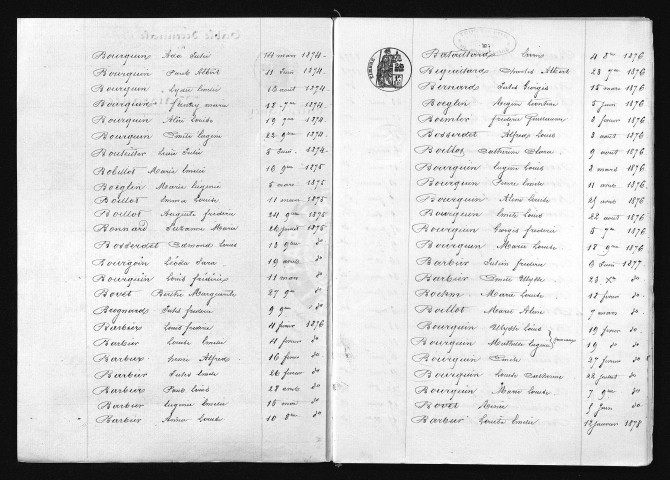 Bourquin Julie 14 mars 1874
Bourquin Paul Albert 11 Juin 1874
Bourquin Lydie Emélie 13 août 1874
Bourquin 18 7re 1874
Bourquin Aline Louise 19 7re 1874
Bourquin Emile Eugène 22 9re 1874
Julie 1874
Bobillot Marie Emélie 16 9re 1875
Boeglin Marie Eugénie 5 mars 1875
Boillot Emma Louise 11 mars 1875
Boillot Auguste Frédéric 24 9re 1875
Bonnard Suzanne Marie 26 juillet 1875
Bosserdet Edmond Louis 13 9re do
Bourgoin Léodie Sara 19 août do
Bourquin Louis Frédéric 11 mars do
Bovet Berthe Marguerite 27 9re do
Jules Frédéric 9 9re do
Barbier Louis Frédéric 4 février 1876
Barbier Louise Emélie 4 février do
Barbier Alfred 16 février do
Barbier Jules Louis 26 février do
Barbier Paul Louis 28 avril do
Barbier Eugénie Emélie 15 mai do
Barbier Anna Louise 10 9re do
Bataillard Louis 4 1876
Béquillard Charles Albert 23 7re 1876
Bernard Jules Georges 15 mars 1876
Boeglin Léontine 5 Juin 1876
Frédéric Guillaume 2 février 1876
Bosserdet Alfred Louis 3 août 1876
Boillot Catherine Clara 9 août 1876
Bourquin Eugène Louis 2 mars 1876
Bourquin Emile 11 avril 1876
Bourquin Louise 25 avril 1876
Bourquin Emile Louis 22 août 1876
Bourquin Georges Frédéric 5 7re 1876
Bourquin Marie Louise 18 9re 1876
Barbier Julien Frédéric 9 Juin 1877
Barbier Emile Ulysse 23 Xre do
Boehm Marie Louise 12 février do
Boillot Marie Aline 7 mars do
Bourquin Ulysse Louis 19 février do
Bourquin Mathilde Eugénie } jumeaux 19 do do
Bourquin Emile 27 février do
Bourquin Louise Catherine 22 juillet do
Bourquin Marie Louise 7 9re do
Bovet 5 Juin do
Barbier Louise Emélie 12 janvier 1878